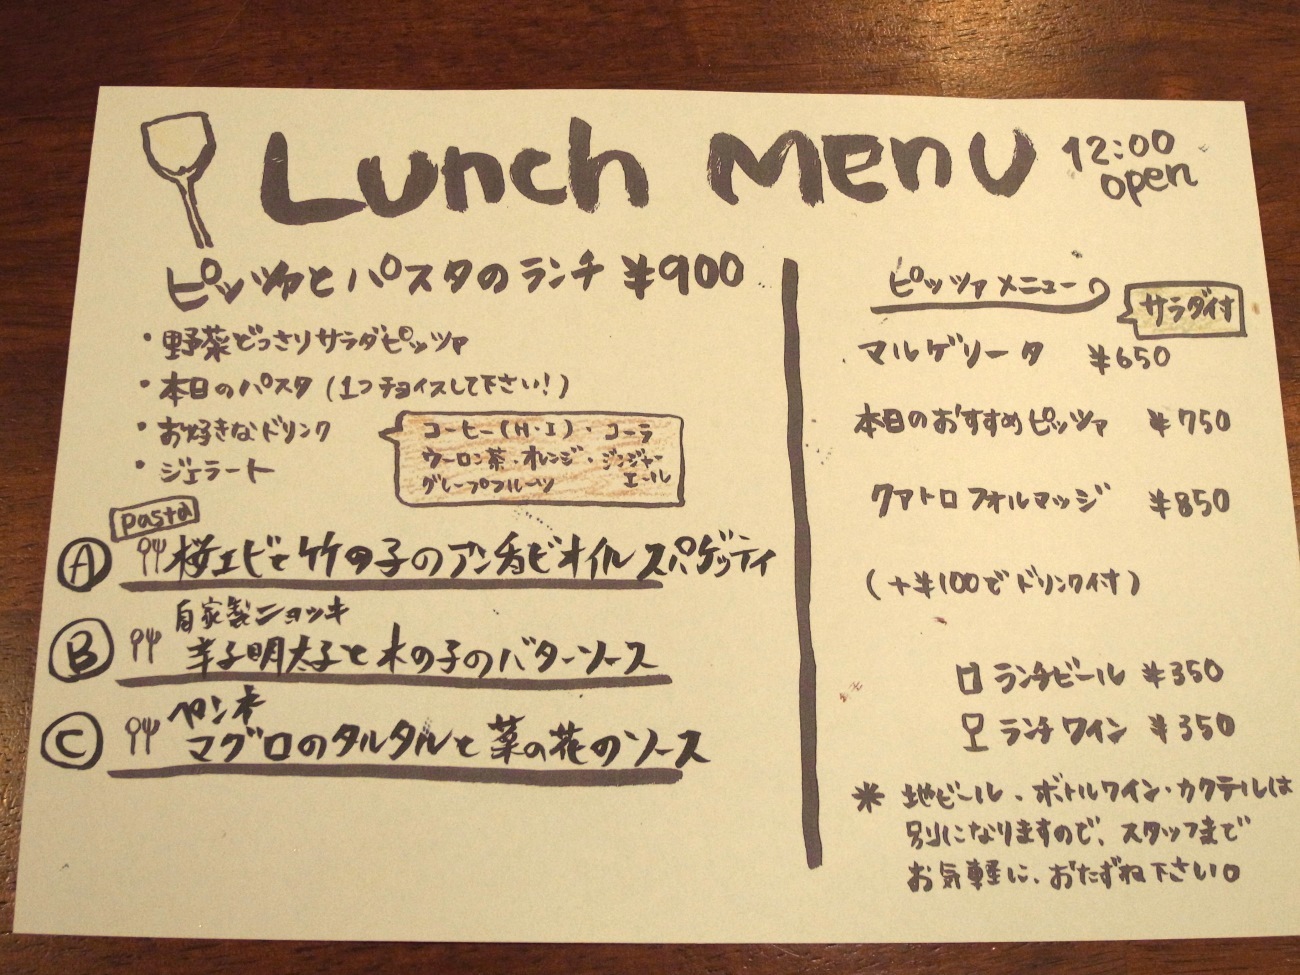 Lunch Menu
12:00
open
ピッツァとパスタのランチ ¥900
・野菜どっさりサラダピッツァ
・本日のパスタ (1つチョイスして下さい!)
・お好きなドリンク
・ジェラート
コーヒー(H・I)・コーラ
ウーロン茶・オレンジ・ジンジャーエール
グレープフルーツ
Pasta
A 桜エビと竹の子のアンチョビオイルスパゲッティ
自家製ニョッキ
B 辛子明太子と木の子のバターソース
ペンネ
C マグロのタルタルと菜の花のソース
ピッツァメニュー
サラダ付
マルゲリータ ¥650
本日のおすすめピッツァ ¥750
クァトロフォルマッジ ¥850
(+¥100でドリンク付)
ランチビール ¥350
ランチワイン ¥350
* 地ビール、ボトルワイン・カクテルは
別になりますので、スタッフまで
お気軽に、おたずね下さい。